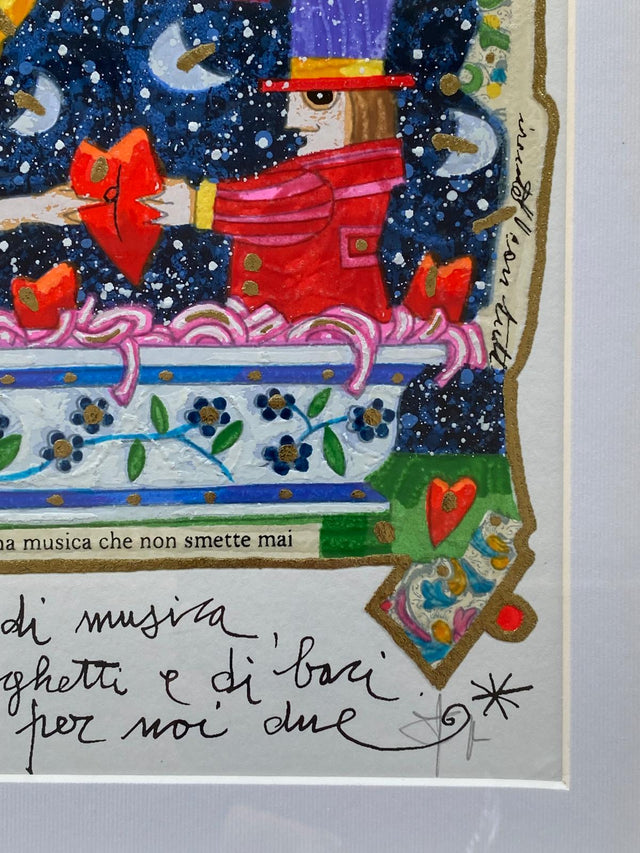 na musica che non smette mai
di musica,
ghetti e di baci
per noi due